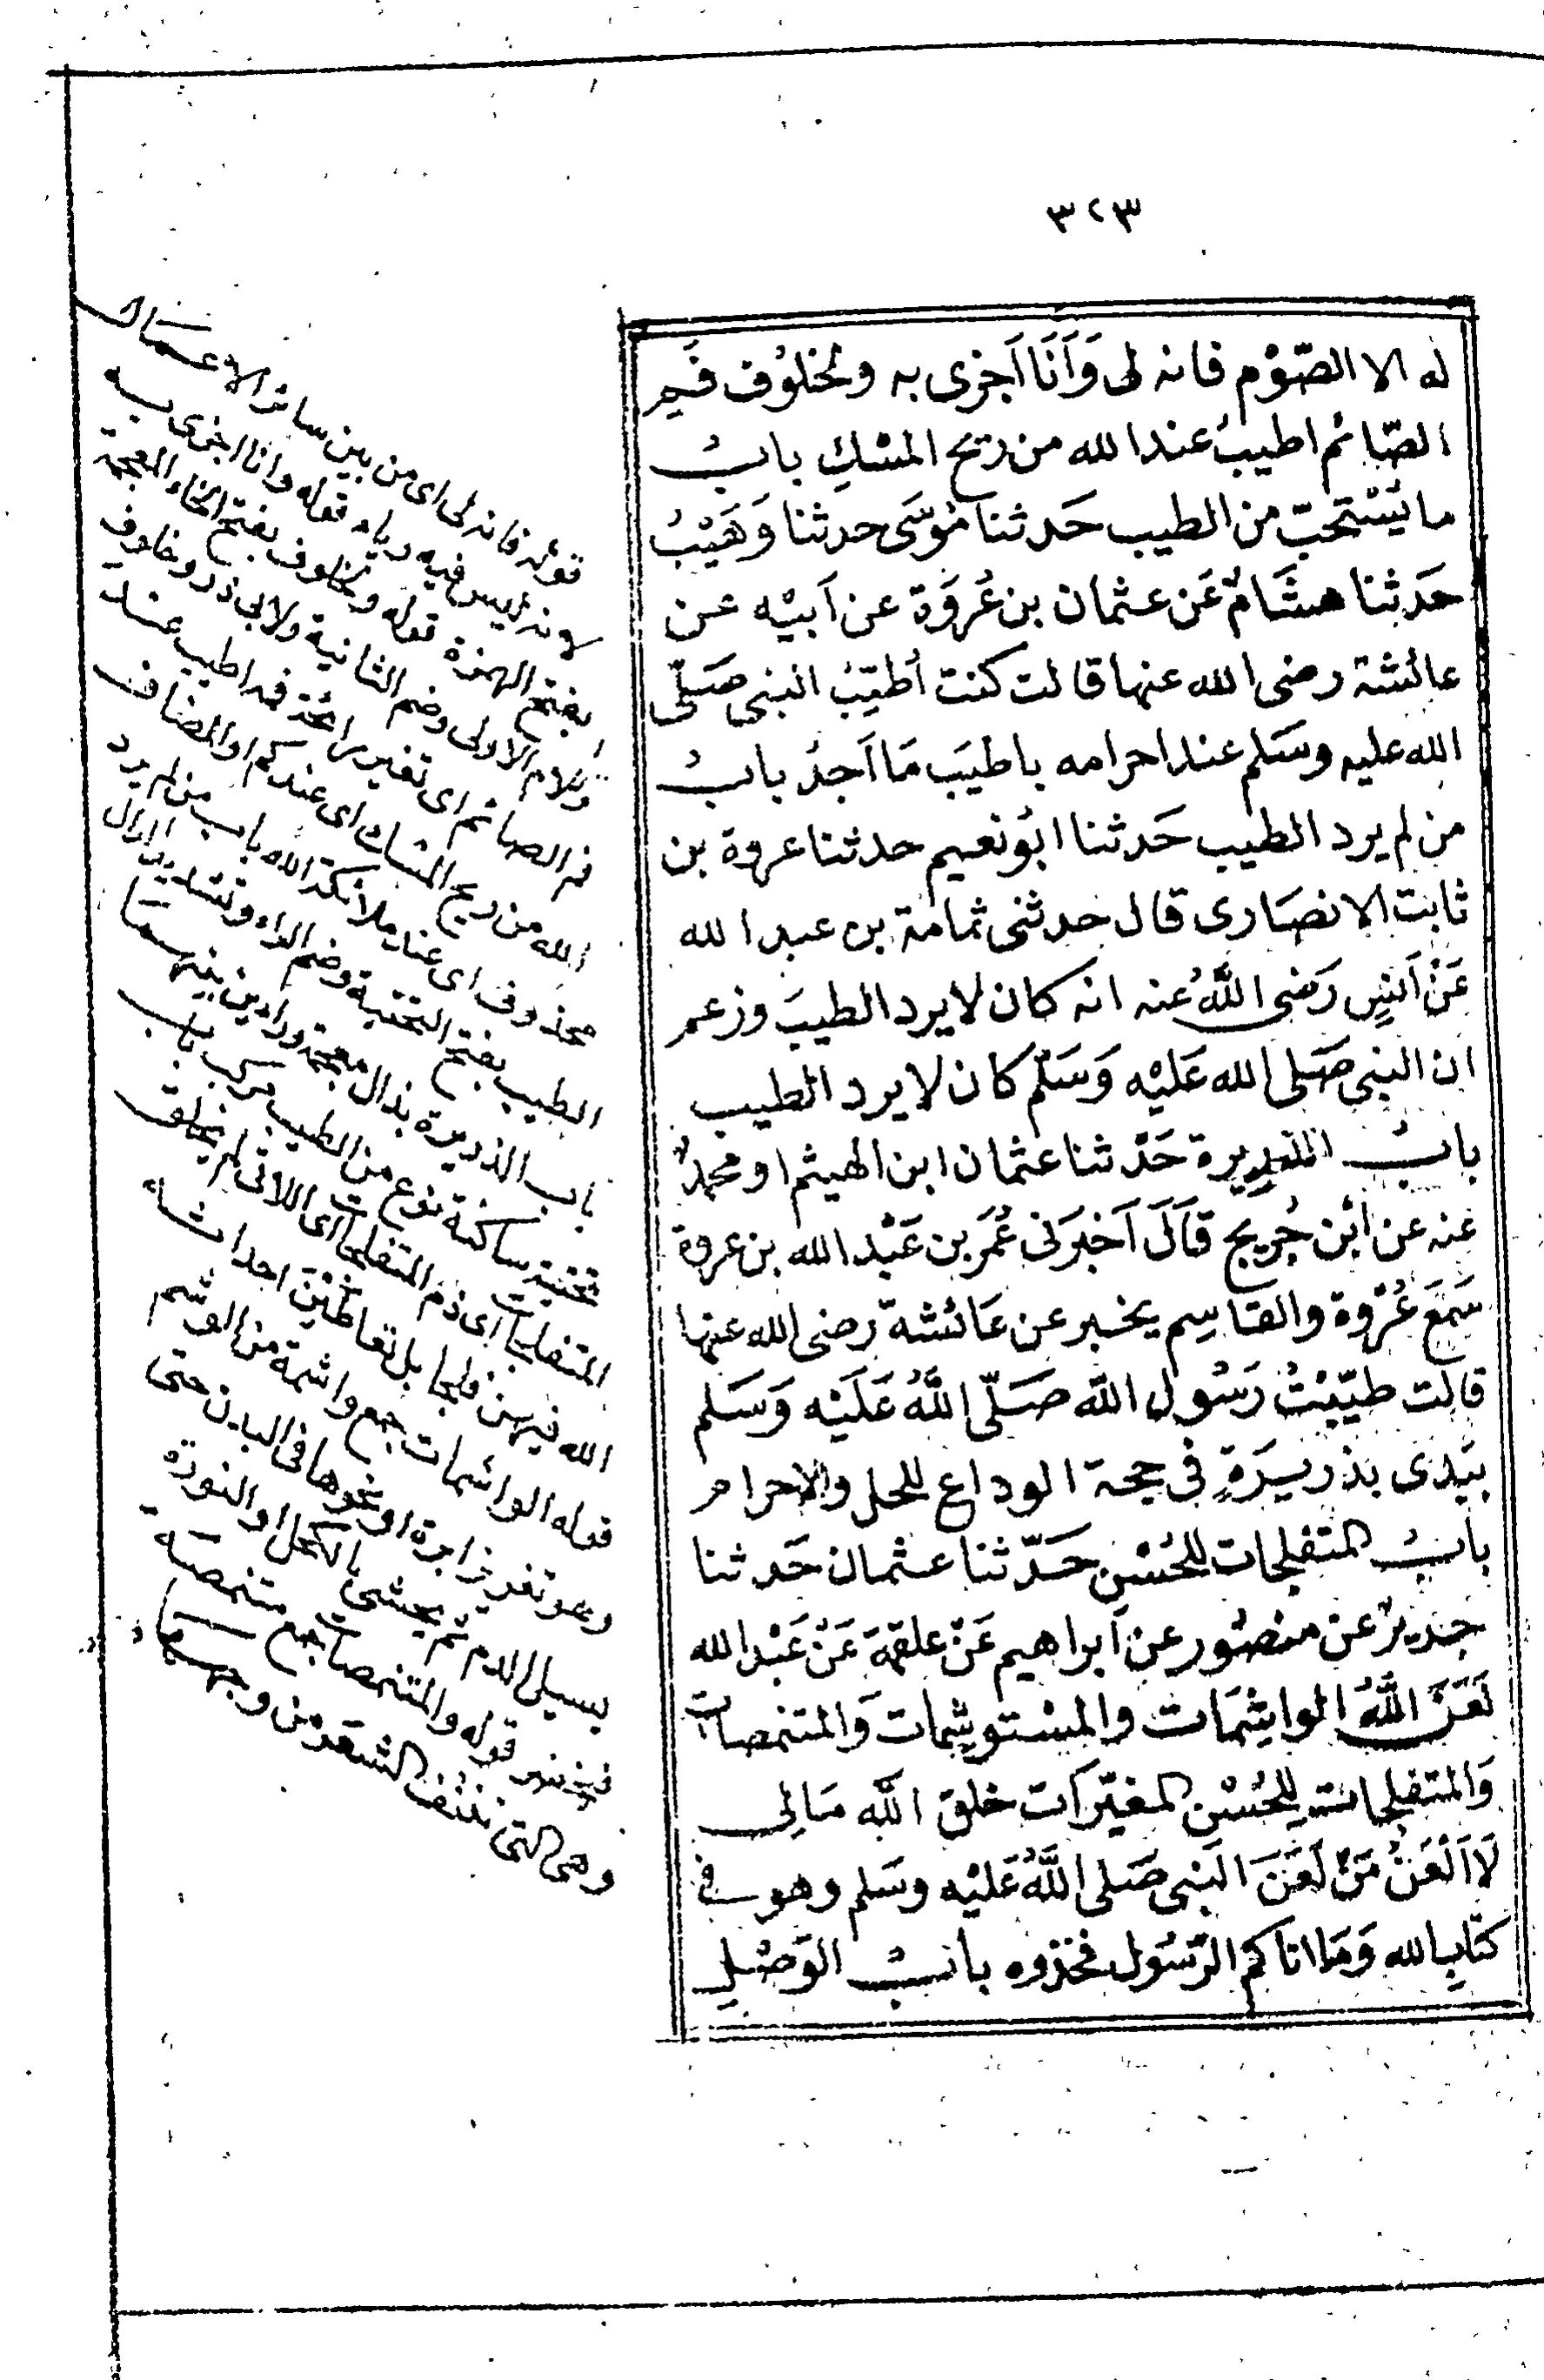 ٣٢٣
له الا الصّوْم فانه لى وَاَنَا اَجزى به ولخلوُف فَمِ
الصّائم اطيبُ عند الله من ريح المسْكِ بابُ
ما يَسْتحبّ من الطيب حَدثنا مُوسَى حدثنا وَهَيْبُ
حَدثنا هشَامٌ عَن عثمان بن عُروَة عن اَبيْه عن
عائشة رضى الله عنها قالت كنت اُطيّبُ النبى صَلّى
الله عليه وسَلم عند احرامه باطيَب مَا اَجدُ بابُ
من لم يرد الطيب حَدثنا ابُو نعيم حدثنا عروة بن
ثابت الانصَارى قال حدثنى ثمامة بن عبد الله
عَنْ اَنسٍ رَضى اللَّهُ عنه انه كان لا يرد الطيبَ وزعم
ان النبى صَلى الله عَليْه وَسَلّم كان لا يرد الطيب
بابُ الذريرة حَدْثنا عثمان ابن الهيثم او محمدٌ
عنه عن ابْن جُريج قاَلَ اَخبَرنى عُمَر بن عَبْد الله بن عروة
سَمعَ عُرْوة والقاسِم يخبر عن عَائشة رضى الله عنها
قالت طيّبْتُ رَسُول اللّه صَلّى اللَّهُ عَلَيْه وَسَلم
بيَدى بذريرَةٍ فى حجة الوداع للحل والاحرام
بابُ المتفلجات للحُسْنِ حَدّثنا عثمان حَدثنا
جَريرٌ عن منصُور عن اَبراهيم عَنْ علقمَة عَنْ عَبْد الله
لَعَنَ اللَّهُ الواشِمَات والمسْتوشِمات وَالمتنمصات
وَالمتفلجات لِلحُسْن المغيّرَات خلق اللّه مَالِى
لَا اَلعَنُ مَنْ لَعَنَ النبى صَلى اللَّهُ عَليْه وسَلم وهو فى
كتابِ الله وَمَا اتاكم الرّسُول فخذوه بابُ الوَصْلِ
قوله فانه لى اى من بين سائر الاعمال
لانه ليس فيه رياء قوله وانا اجزى به
بفتح الهمزة قوله ولخلوف بفتح الخاء المعجمة
واللام الاولى وضم الثانية ولابى ذر وخلوف
فم الصائم اى تغير رائحة فمه اطيب عند
الله من ريح المسك اى عندكم او المضاف
محذوف اى عند ملائكة الله باب من لم يرد
الطيب بفتح التحتية وضم الراء وتشديد الدال
باب الذريرة بذال معجمة وراءين بينهما
تحتية ساكنة نوع من الطيب مركب باب
المتفلجات اى ذم المتفلجات اى اللاتى لم يخلق
الله فيهن فلجا بل تعاطين احداثه
قوله الواشمات جمع واشمة من الوشم
وهو تغريز ابرة او نحوها فى البدن حتى
يسيل الدم ثم يحشى بالكحل او النورة
فيخضر قوله والمتنمصات جمع متنمصة
وهى التى تنتف الشعر من وجهها